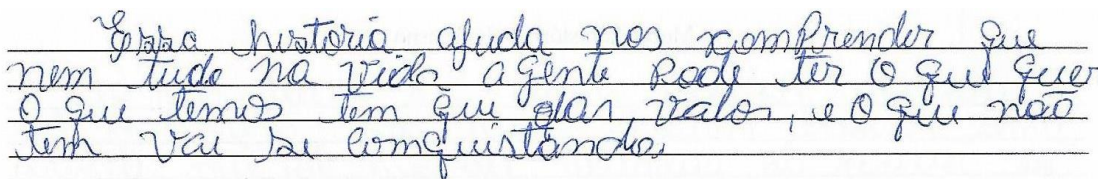 Essa historia ajuda nos comprender que
nem tudo na vida agente pode ter o que quer
O que temos tem que dar, valor, e o que não
tem vai se comquistando.